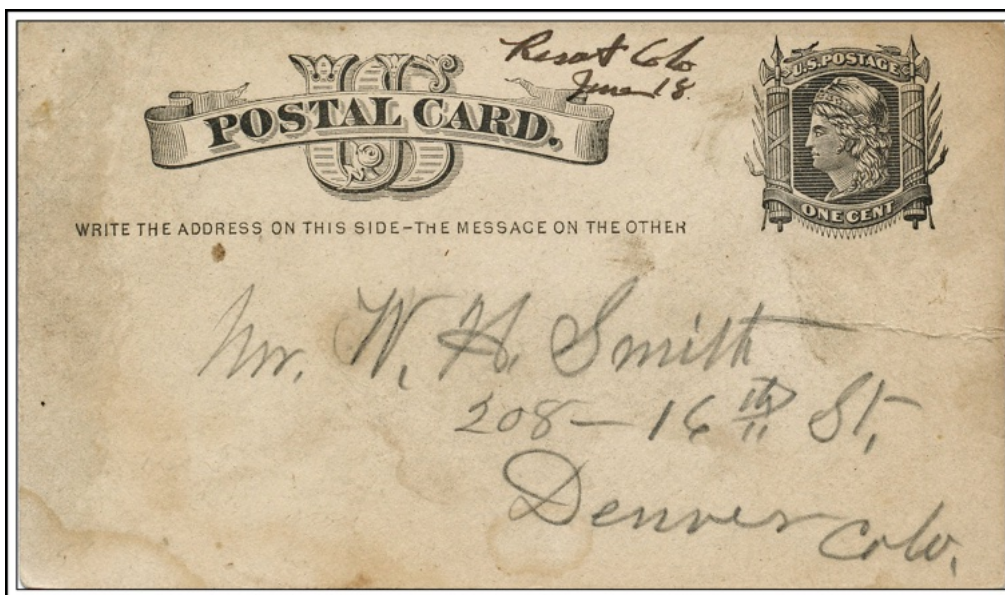 Colo
June 18.
US
POSTAL CARD.
U.S. POSTAGE
ONE CENT
WRITE THE ADDRESS ON THIS SIDE-THE MESSAGE ON THE OTHER
Mr. W. H. Smith
208-16th St,
Denver
Colo.